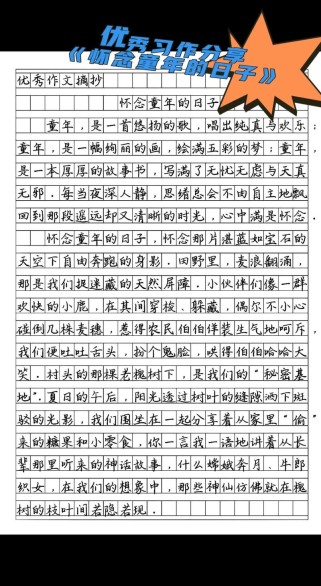 优秀习作分享
《怀念童年的日子》
优秀作文摘抄
怀念童年的日子
童年，是一首悠扬的歌，唱出纯真与欢乐；
童年，是一幅绚丽的画，绘满五彩的梦；童年，
是一本厚厚的故事书，写满了无忧无虑与天真
无邪．每当夜深人静，思绪总会不由自主地飘
回到那段遥远却又清晰的时光，心中满是怀念．
怀念童年的日子，怀念那片湛蓝如宝石的
天空下自由奔跑的身影．田野里，麦浪翻涌，
那是我们捉迷藏的天然屏障．小伙伴们像一群
欢快的小鹿，在其间穿梭、躲藏，偶尔不小心
碰倒几株麦穗，惹得农民伯伯佯装生气地呵斥，
我们便吐吐舌头，扮个鬼脸，哄得伯伯哈哈大
笑．村头的那棵老槐树下，是我们的"秘密基
地"．夏日的午后，阳光透过树叶的缝隙洒下斑
驳的光影，我们围坐在一起分享着从家里"偷"
来的糖果和小零食，你一言我一语地讲着从长
辈那里听来的神话故事．什么嫦娥奔月、牛郎
织女，在我们的想象中，那些神仙仿佛就在槐
树的枝叶间若隐若现．